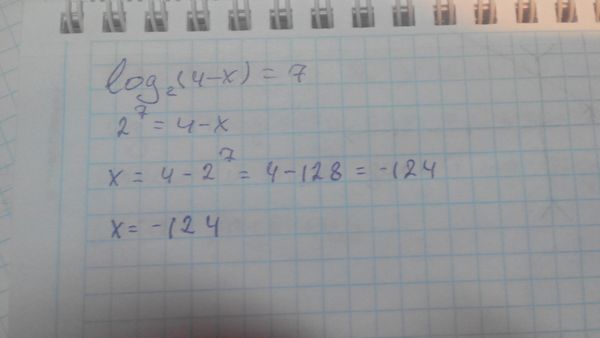 log₂(4-x) = 7
2⁷ = 4-x
x = 4 - 2⁷ = 4 - 128 = -124
x = -124